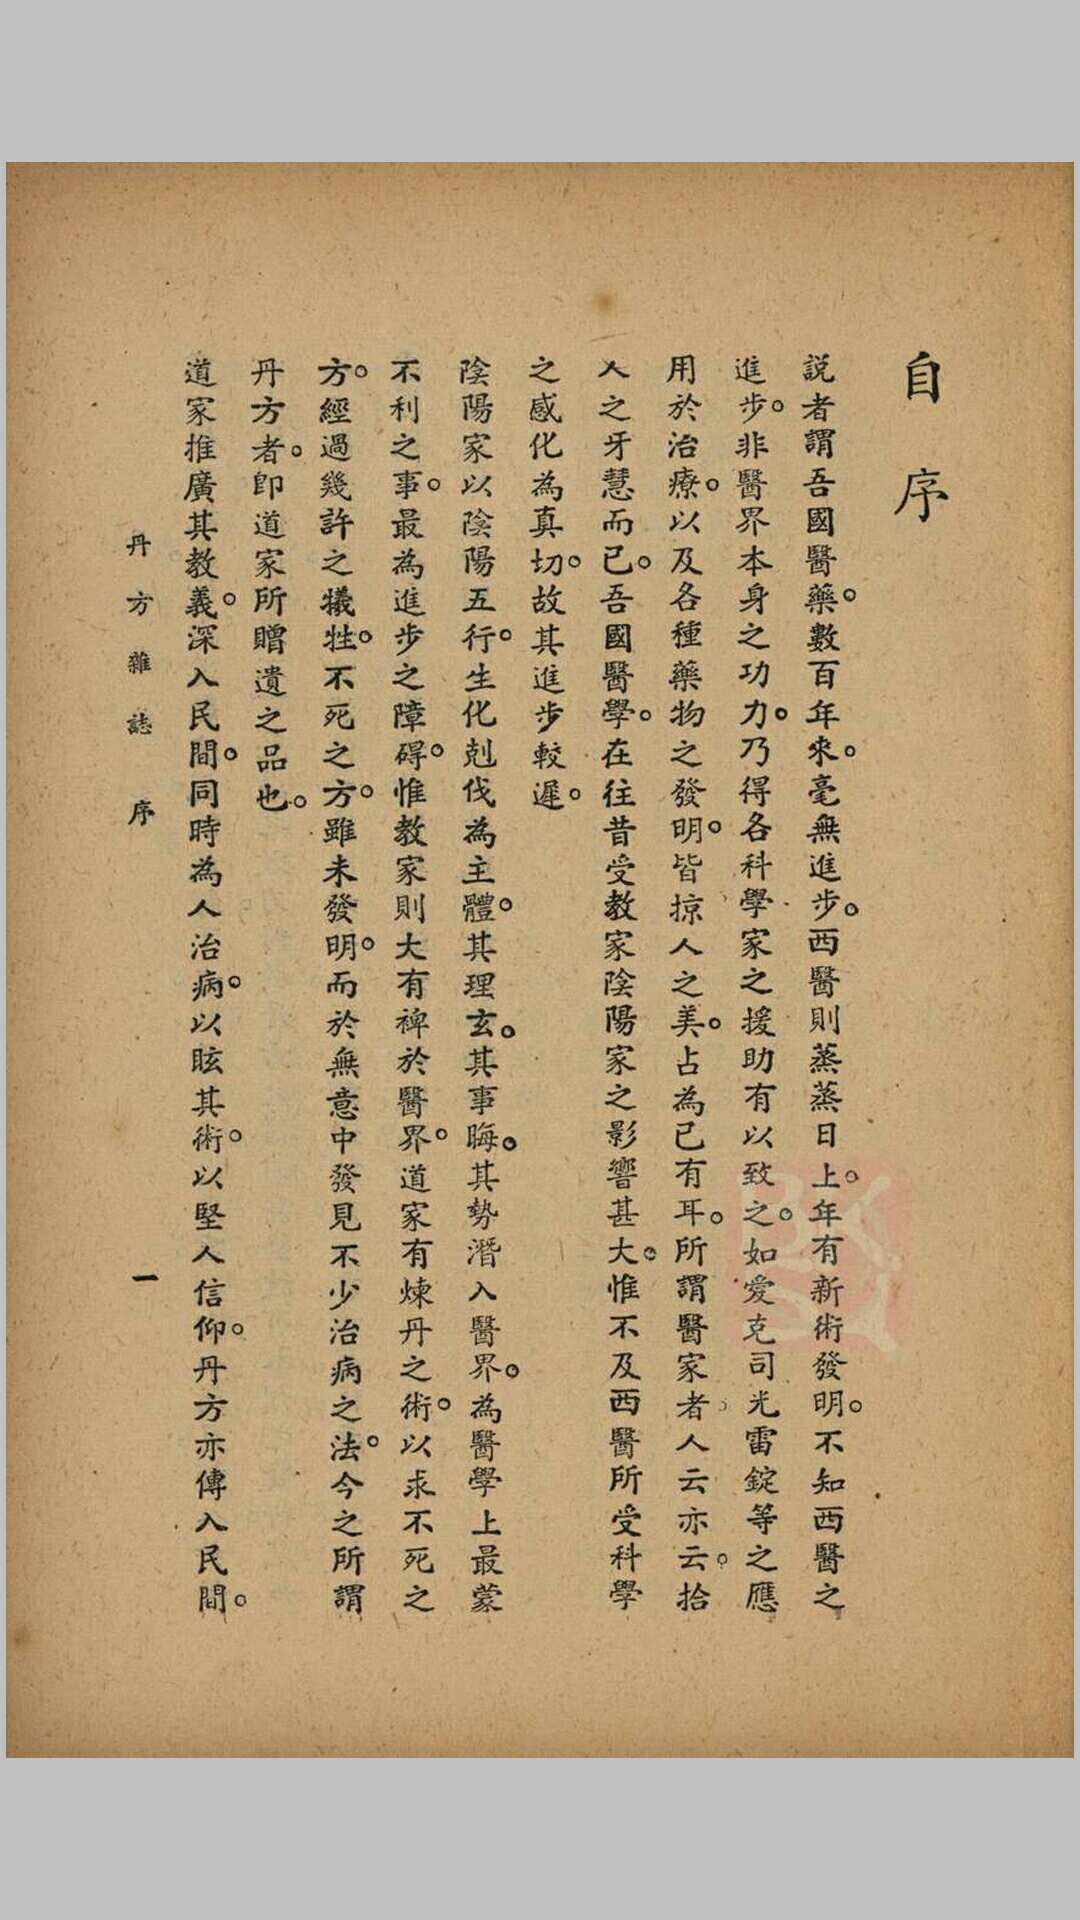 自序
説者謂吾國醫藥。數百年來。毫無進步。西醫則蒸蒸日上。年有新術發明。不知西醫之
進步。非醫界本身之功力。乃得各科學家之援助有以致之。如愛克司光雷錠等之應
用於治療。以及各種藥物之發明。皆掠人之美。占為己有耳。所謂醫家者人云亦云。拾
人之牙慧而已。吾國醫學。在往昔受教家陰陽家之影響甚大。惟不及西醫所受科學
之感化為真切。故其進步較遲。
陰陽家以陰陽五行。生化剋伐為主體。其理玄。其事晦。其勢潛入醫界。為醫學上最蒙
不利之事。最為進步之障碍。惟教家則大有裨於醫界。道家有煉丹之術。以求不死之
方。經過幾許之犧牲。不死之方。雖未發明。而於無意中發見不少治病之法。今之所謂
丹方者。即道家所贈遺之品也。
道家推廣其教義。深入民間。同時為人治病。以眩其術。以堅人信仰。丹方亦傳入民間。
丹方雜誌 序 一